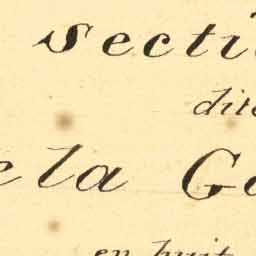 Secti
dite
ela Go
en huit